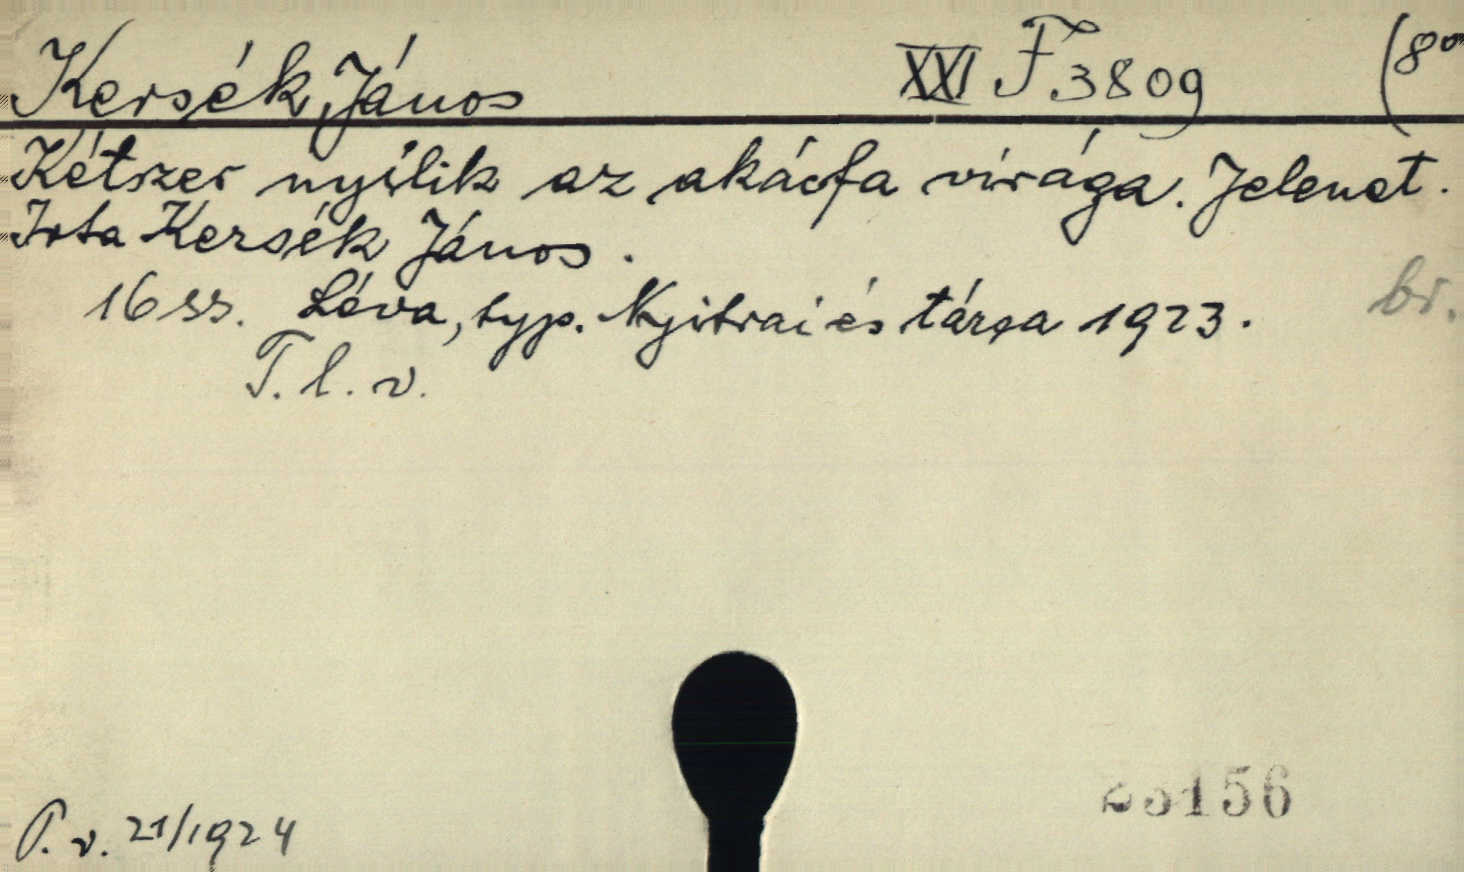 Kersék János XXI F 3809 (8°
Kétszer nyílik az akácfa virága. Jelenet.
Irta Kersék János.
16 ss. Léva, typ. Nyitrai és társa 1923. br.
T. l. v.
P. v. 21/1924
23156